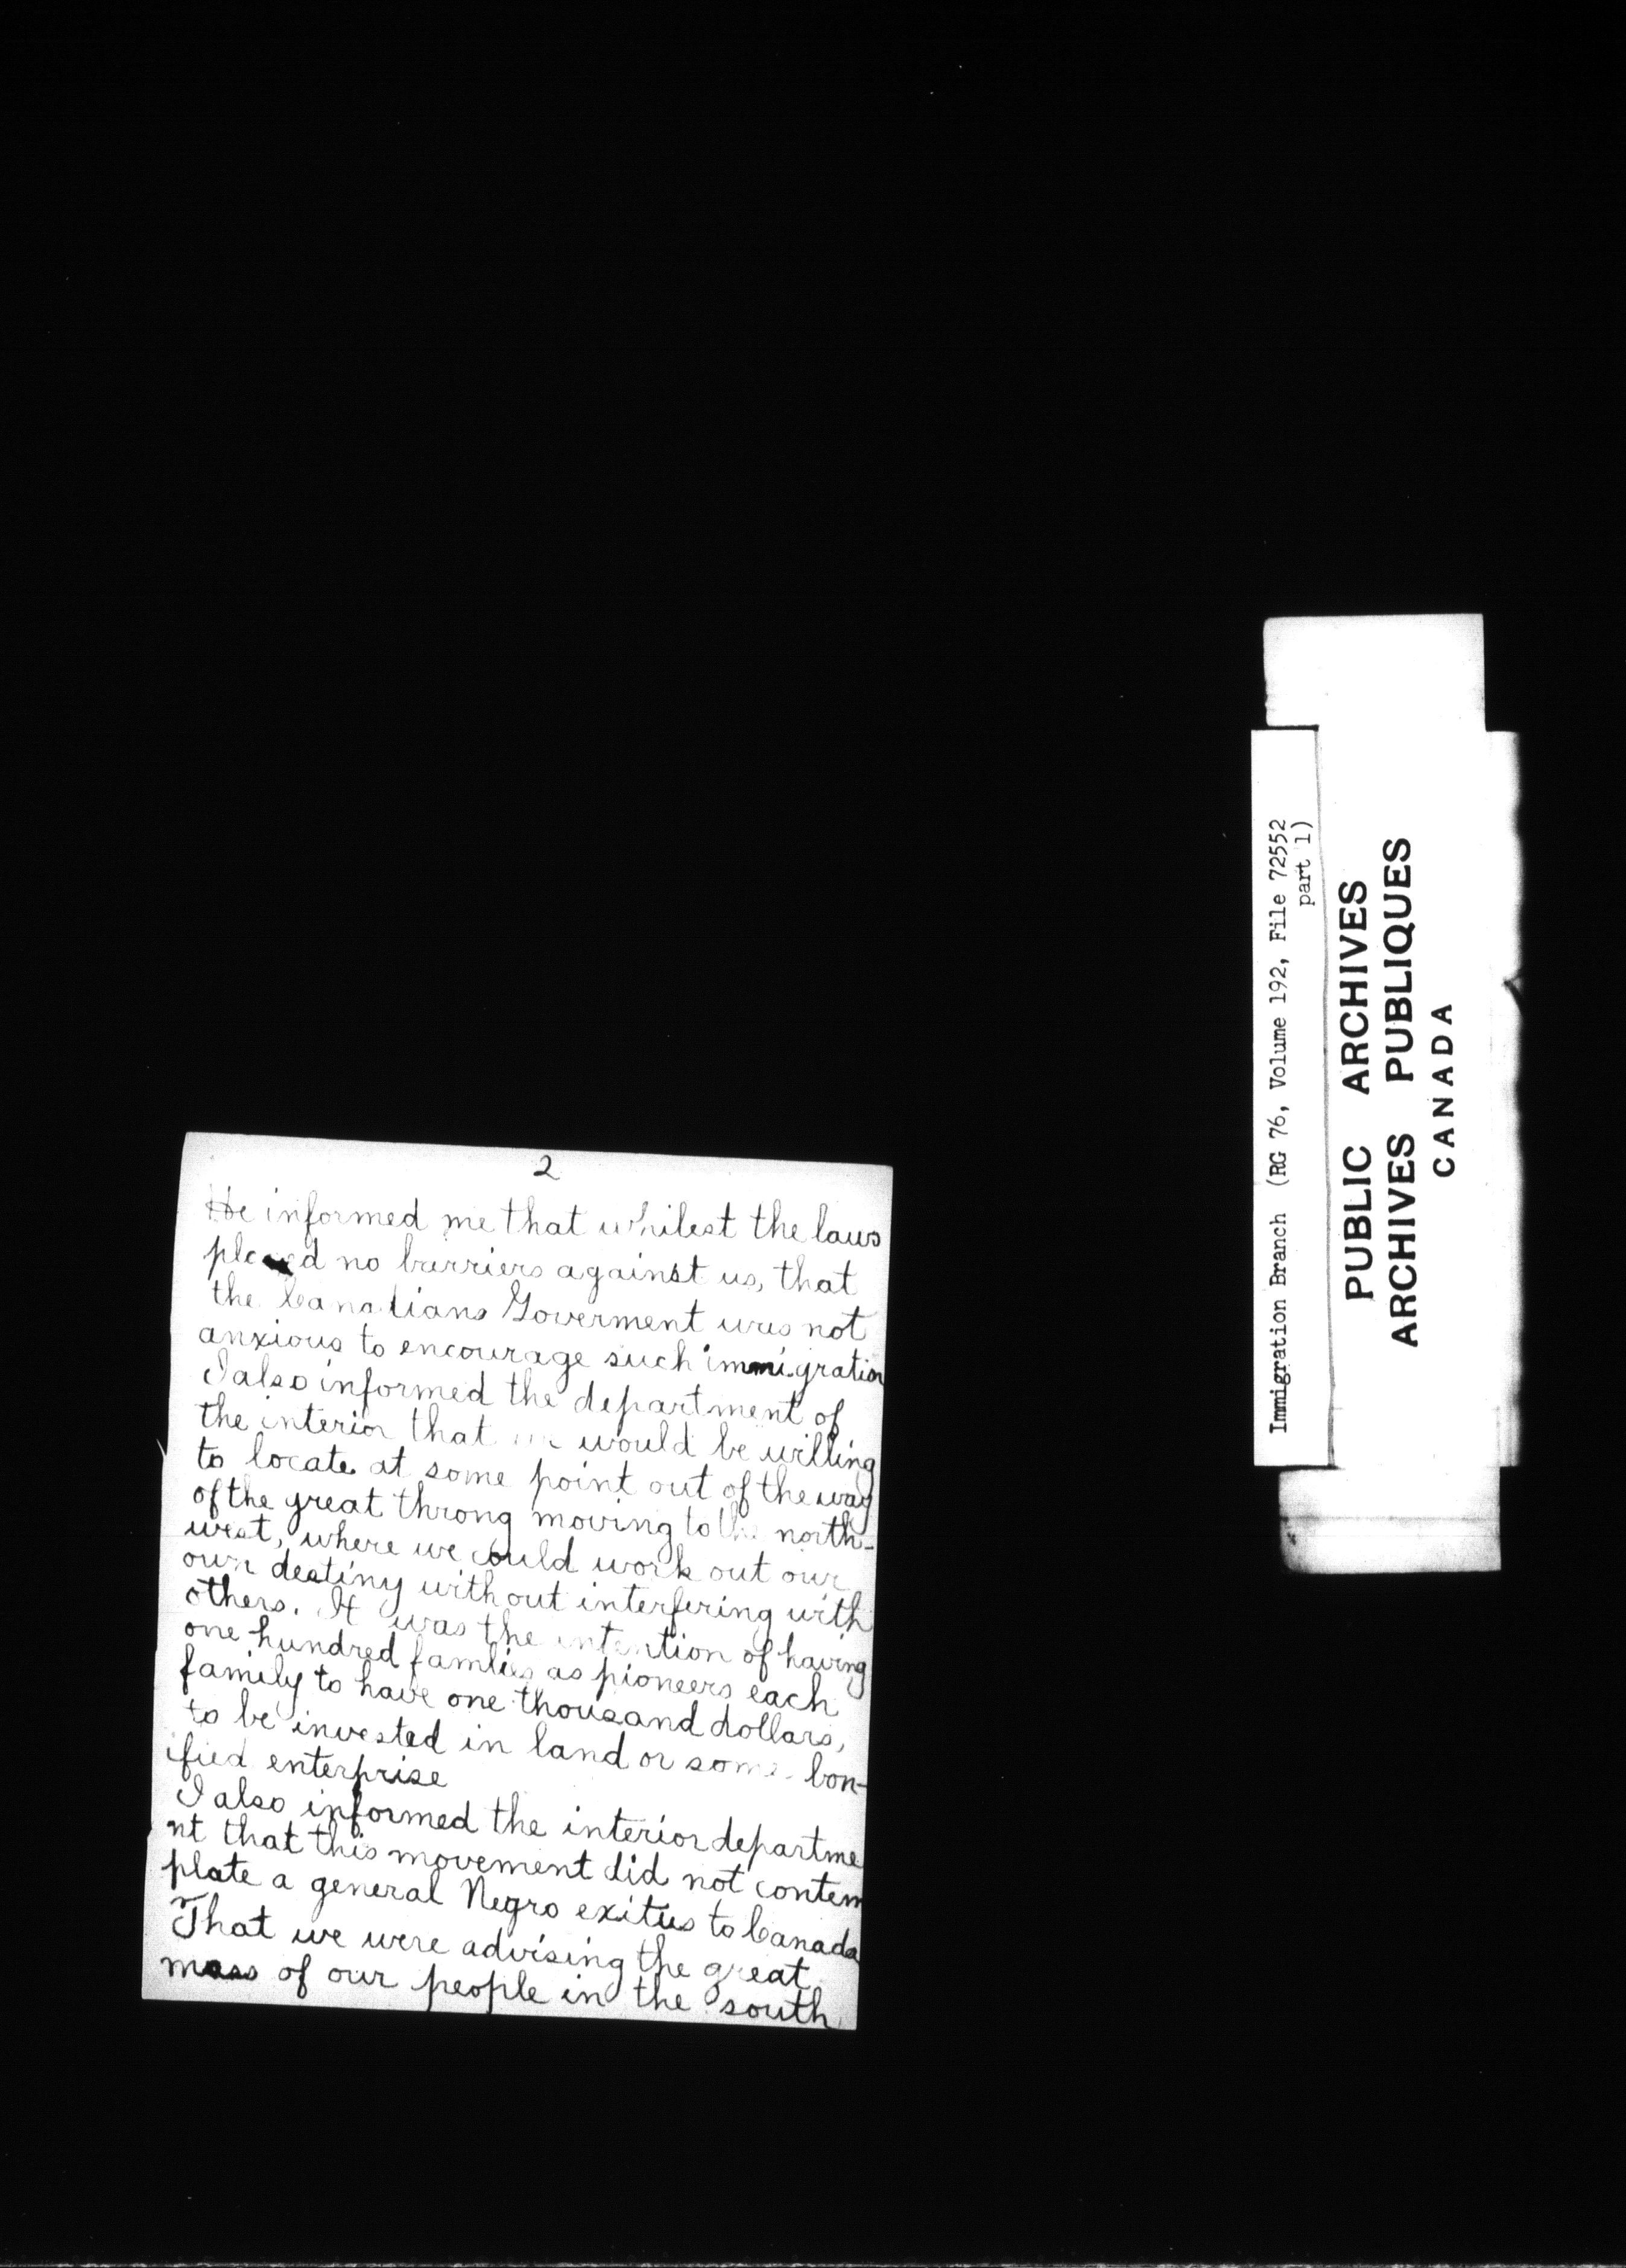 2
He informed me that whilest the laws
placed no barriers against us, that
the Canadians Goverment was not
anxious to encourage such immigration
I also informed the department of
the interior that we would be willing
to locate at some point out of the way
of the great throng moving to the north-
west, where we could work out our
own destiny without interfering with
others. It was the intention of having
one hundred famlies as pioneers each
family to have one thousand dollars,
to be invested in land or some bon-
ified enterprise
I also informed the interior departme
nt that this movement did not contem
plate a general Negro exitus to Canada
That we were advising the great
mass of our people in the south
Immigration Branch (RG 76, Volume 192, File 72552
part 1)
PUBLIC ARCHIVES
ARCHIVES PUBLIQUES
CANADA